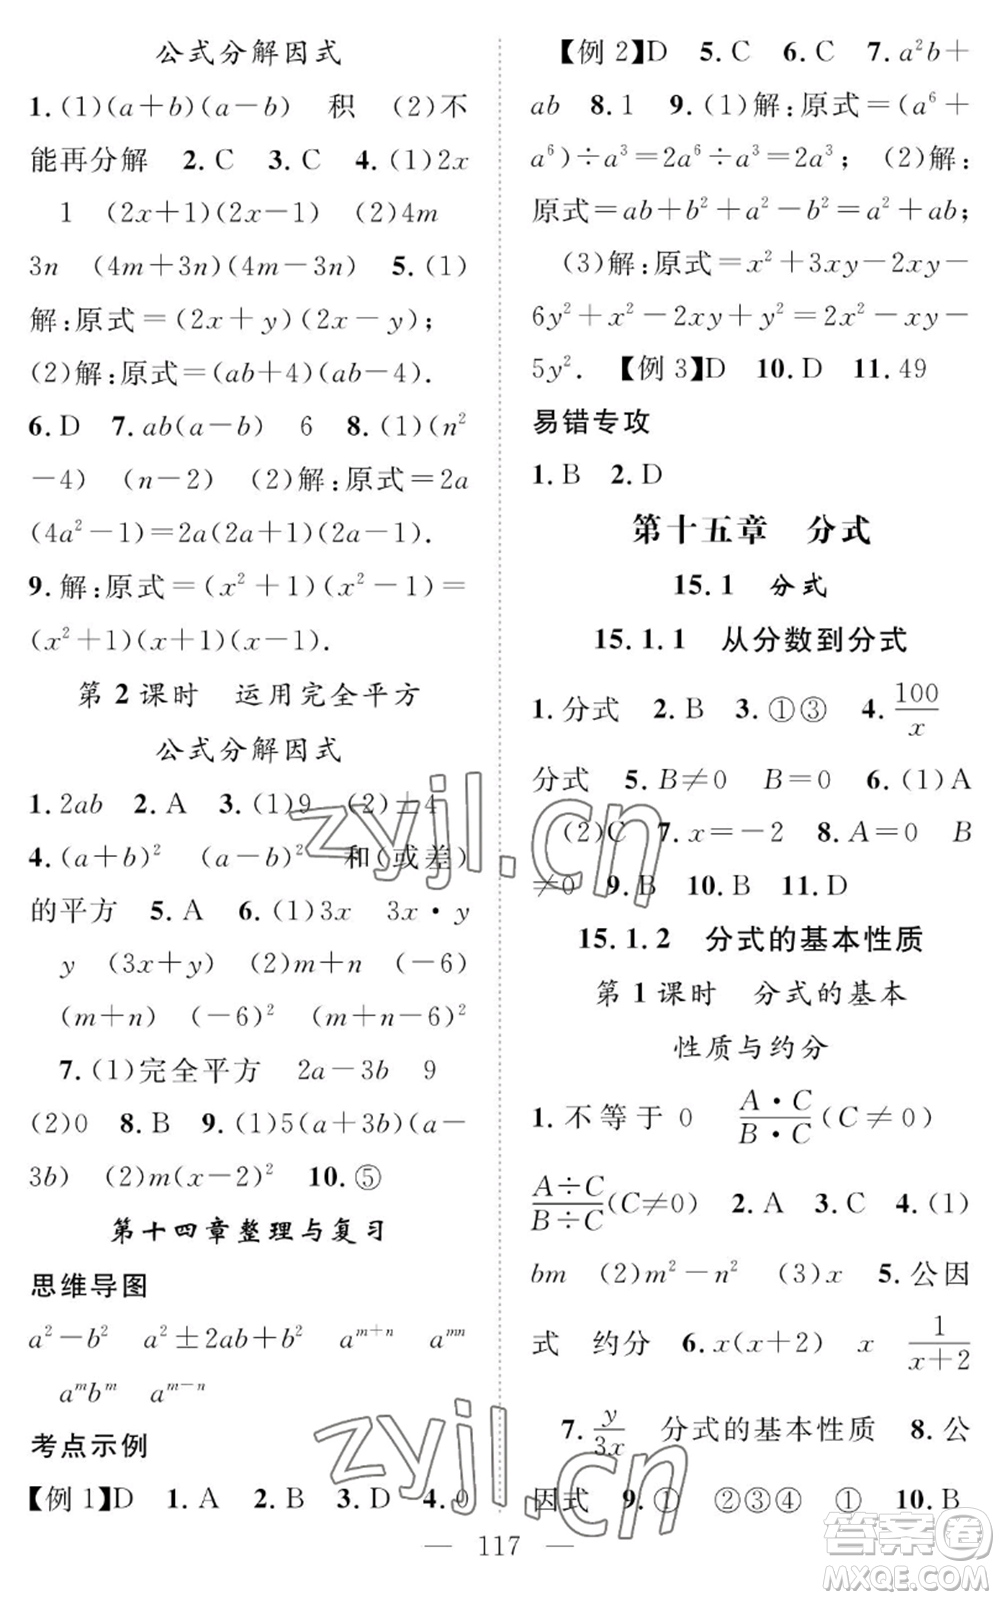 公式分解因式
1.(1)(a+b)(a-b) 积 (2)不
能再分解 2.C 3.C 4.(1)2x
1 (2x+1)(2x-1) (2)4m
3n (4m+3n)(4m-3n) 5.(1)
解:原式=(2x+y)(2x-y);
(2)解:原式=(ab+4)(ab-4).
6.D 7.ab(a-b) 6 8.(1)(n²
-4) (n-2) (2)解:原式=2a
(4a²-1)=2a(2a+1)(2a-1).
9.解:原式=(x²+1)(x²-1)=
(x²+1)(x+1)(x-1).
第2课时 运用完全平方
公式分解因式
1.2ab 2.A 3.(1)9 (2)±4
4.(a+b)² (a-b)² 和(或差)
的平方 5.A 6.(1)3x 3x·y
y (3x+y) (2)m+n (-6)
(m+n) (-6)² (m+n-6)²
7.(1)完全平方 2a-3b 9
(2)0 8.B 9.(1)5(a+3b)(a-
3b) (2)m(x-2)² 10.⑤
第十四章整理与复习
思维导图
a²-b² a²±2ab+b² aᵐ⁺ⁿ aᵐⁿ
aᵐbᵐ aᵐ⁻ⁿ
考点示例
【例1】D 1.A 2.B 3.D 4.0
【例2】D 5.C 6.C 7.a²b+
ab 8.1 9.(1)解:原式=(a⁶+
a⁶)÷a³=2a⁶÷a³=2a³; (2)解:
原式=ab+b²+a²-b²=a²+ab;
(3)解:原式=x²+3xy-2xy-
6y²+x²-2xy+y²=2x²-xy-
5y². 【例3】D 10.D 11.49
易错专攻
1.B 2.D
第十五章 分式
15.1 分式
15.1.1 从分数到分式
1.分式 2.B 3.①③ 4.100/x
分式 5.B≠0 B=0 6.(1)A
(2)C 7.x=-2 8.A=0 B
≠0 9.B 10.B 11.D
15.1.2 分式的基本性质
第1课时 分式的基本
性质与约分
1.不等于0 A·C/B·C(C≠0)
A÷C/B÷C(C≠0) 2.A 3.C 4.(1)
bm (2)m²-n² (3)x 5.公因
式 约分 6.x(x+2) x 1/x+2
7.y/3x 分式的基本性质 8.公
因式 9.① ②③④ ① 10.B
117
zyjl.cn
zyjl.cn
答案圈
MXQE.COM